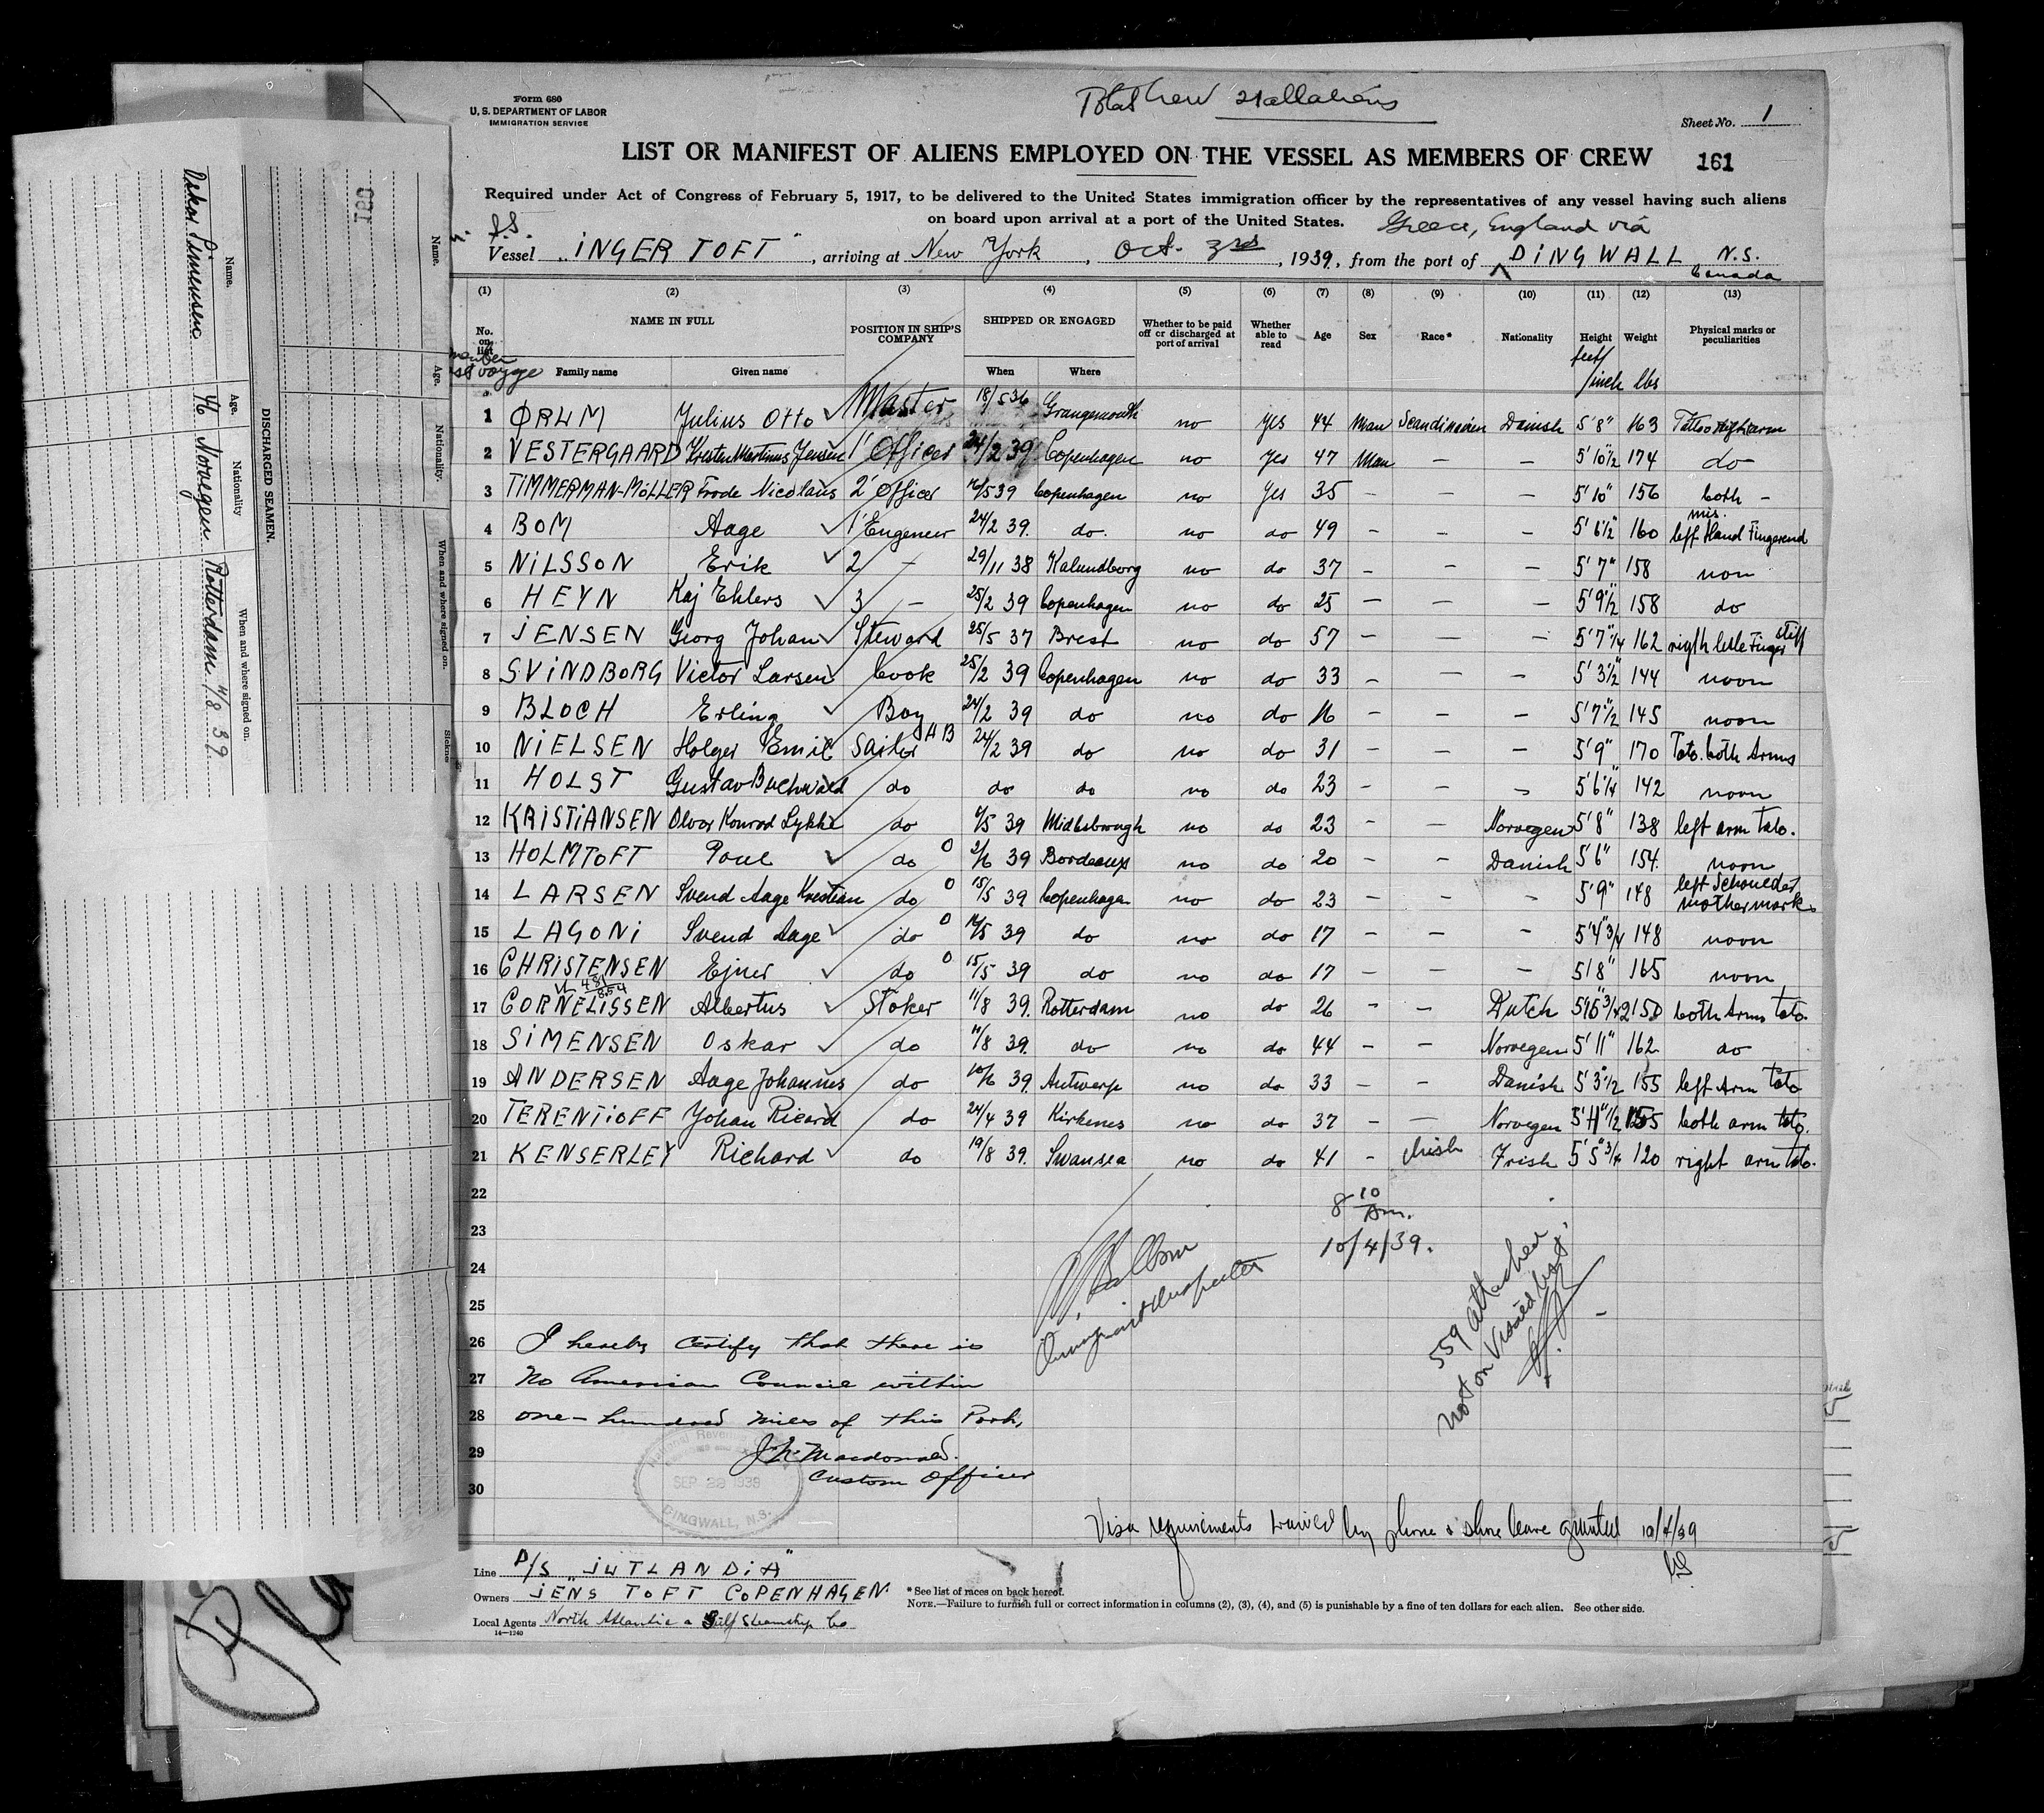 Form 680
U. S. DEPARTMENT OF LABOR
IMMIGRATION SERVICE
Total Crew 21 all aliens
Sheet No. 1
LIST OR MANIFEST OF ALIENS EMPLOYED ON THE VESSEL AS MEMBERS OF CREW 161
Required under Act of Congress of February 5, 1917, to be delivered to the United States immigration officer by the representatives of any vessel having such aliens
on board upon arrival at a port of the United States. Greece, England via
S.S.
Vessel "INGER TOFT", arriving at New York, Oct. 3rd, 1939, from the port of DINGWALL N.S.
Canada
(1) (2) (3) (4) (5) (6) (7) (8) (9) (10) (11) (12) (13)
No. on list NAME IN FULL POSITION IN SHIP'S COMPANY SHIPPED OR ENGAGED Whether to be paid off or discharged at port of arrival Whether able to read Age Sex Race* Nationality Height Weight Physical marks or peculiarities
Family name Given name When Where feet/inch lbs
1 ØRUM Julius Otto Master 18/5 36 Grangemouth no yes 44 Man Scandinavien Danish 5'8" 163 Tattoo right arm
2 VESTERGAARD Kresten Martinus Jensen 1' Officer 24/2 39 Copenhagen no Yes 47 Man — — 5'10"1/2 174 do
3 TIMMERMAN-MöLLER Frode Nicolaus 2' Officer 16/5 39 Copenhagen no Yes 35 – – – 5'10" 156 both –
4 BOM Aage 1' Engeneer 24/2 39. do. no do 49 – – – 5'6"1/2 160 mis. left Hand Fingerend
5 NILSSON Erik 2 — 29/11 38 Kalundborg no do 37 – – – 5'7" 158 non
6 HEYN Kaj Ehlers 3 — 25/2 39 Copenhagen no do 25 – – – 5'9"1/2 158 do
7 JENSEN Georg Johan Steward 25/5 37 Brest no do 57 – – – 5'7"1/4 162 rigth litle Finger stiff
8 SVINDBORG Victor Larsen Cook 25/2 39 Copenhagen no do 33 – – – 5'3"1/2 144 noon
9 BLOCH Erling Boy 24/2 39 do no do 16 – – – 5'7"1/2 145 noon
10 NIELSEN Holger Emil Sailor AB 24/2 39 do no do 31 – – – 5'9" 170 Tato. both Arms
11 HOLST Gustav Buchwald do do do no do 23 – – – 5'6"1/4 142 noon
12 KRISTIANSEN Olvar Konrad Lykke do 9/5 39 Midlesbrough no do 23 – – Norvegen 5'8" 138 left arm tato.
13 HOLMTOFT Poul do O 2/6 39 Bordeaux no do 20 – – Danish 5'6" 154 noon
14 LARSEN Svend Aage Kristian do O 15/5 39 Copenhagen no do 23 – – – 5'9" 148 left Schoulder mothermark
15 LAGONI Svend Aage do O 16/5 39 do no do 17 – – – 5'4"3/4 148 noon
16 CHRISTENSEN Ejner do O 15/5 39 do no do 17 – – – 5'8" 165 noon
17 CORNELISSEN Albertus Stoker 11/8 39. Rotterdam no do 26 – – Dutch 5'5"3/4 150 both Arms tato.
18 SIMENSEN Oskar do 11/8 39. do no do 44 – – Norvegen 5'11" 162 do
19 ANDERSEN Aage Johannes do 10/6 39. Antwerp no do 33 – – Danish 5'3"1/2 155 left Arm tato
20 TERENTIOFF Johan Ricard do 24/4 39 Kirkenes no do 37 – – Norvegen 5'11"1/2 155 both arm tato.
21 KENSERLEY Richard do 19/8 39. Swansea no do 41 – Irish Irish 5'5"3/4 120 right arm tato.
22
23
24
25
26
27
28
29
30
8 10 Am.
10/4/39.
Immigrant Inspector
559 attached
not on Visaed list
I hereby certify that there is
no American Council within
one-hundred miles of this Port,
J. N. Macdonald.
Custom Officer
National Revenue
SEP 28 1939
DINGWALL, N.S.
Visa requirements waived by phone & shore leave granted 10/4/39
Line D/S "JUTLANDIA"
Owners JENS TOFT COPENHAGEN.
Local Agents North Atlantic & Gulf Steamship Co
14—1240
* See list of races on back hereof.
NOTE.—Failure to furnish full or correct information in columns (2), (3), (4), and (5) is punishable by a fine of ten dollars for each alien. See other side.
DISCHARGED SEAMEN.
Name. Age. Nationality When and where signed on.
Oskar Simensen 46 Norvegen Rotterdam 11/8 39
Name. Age. Nationality. When and where signed on.